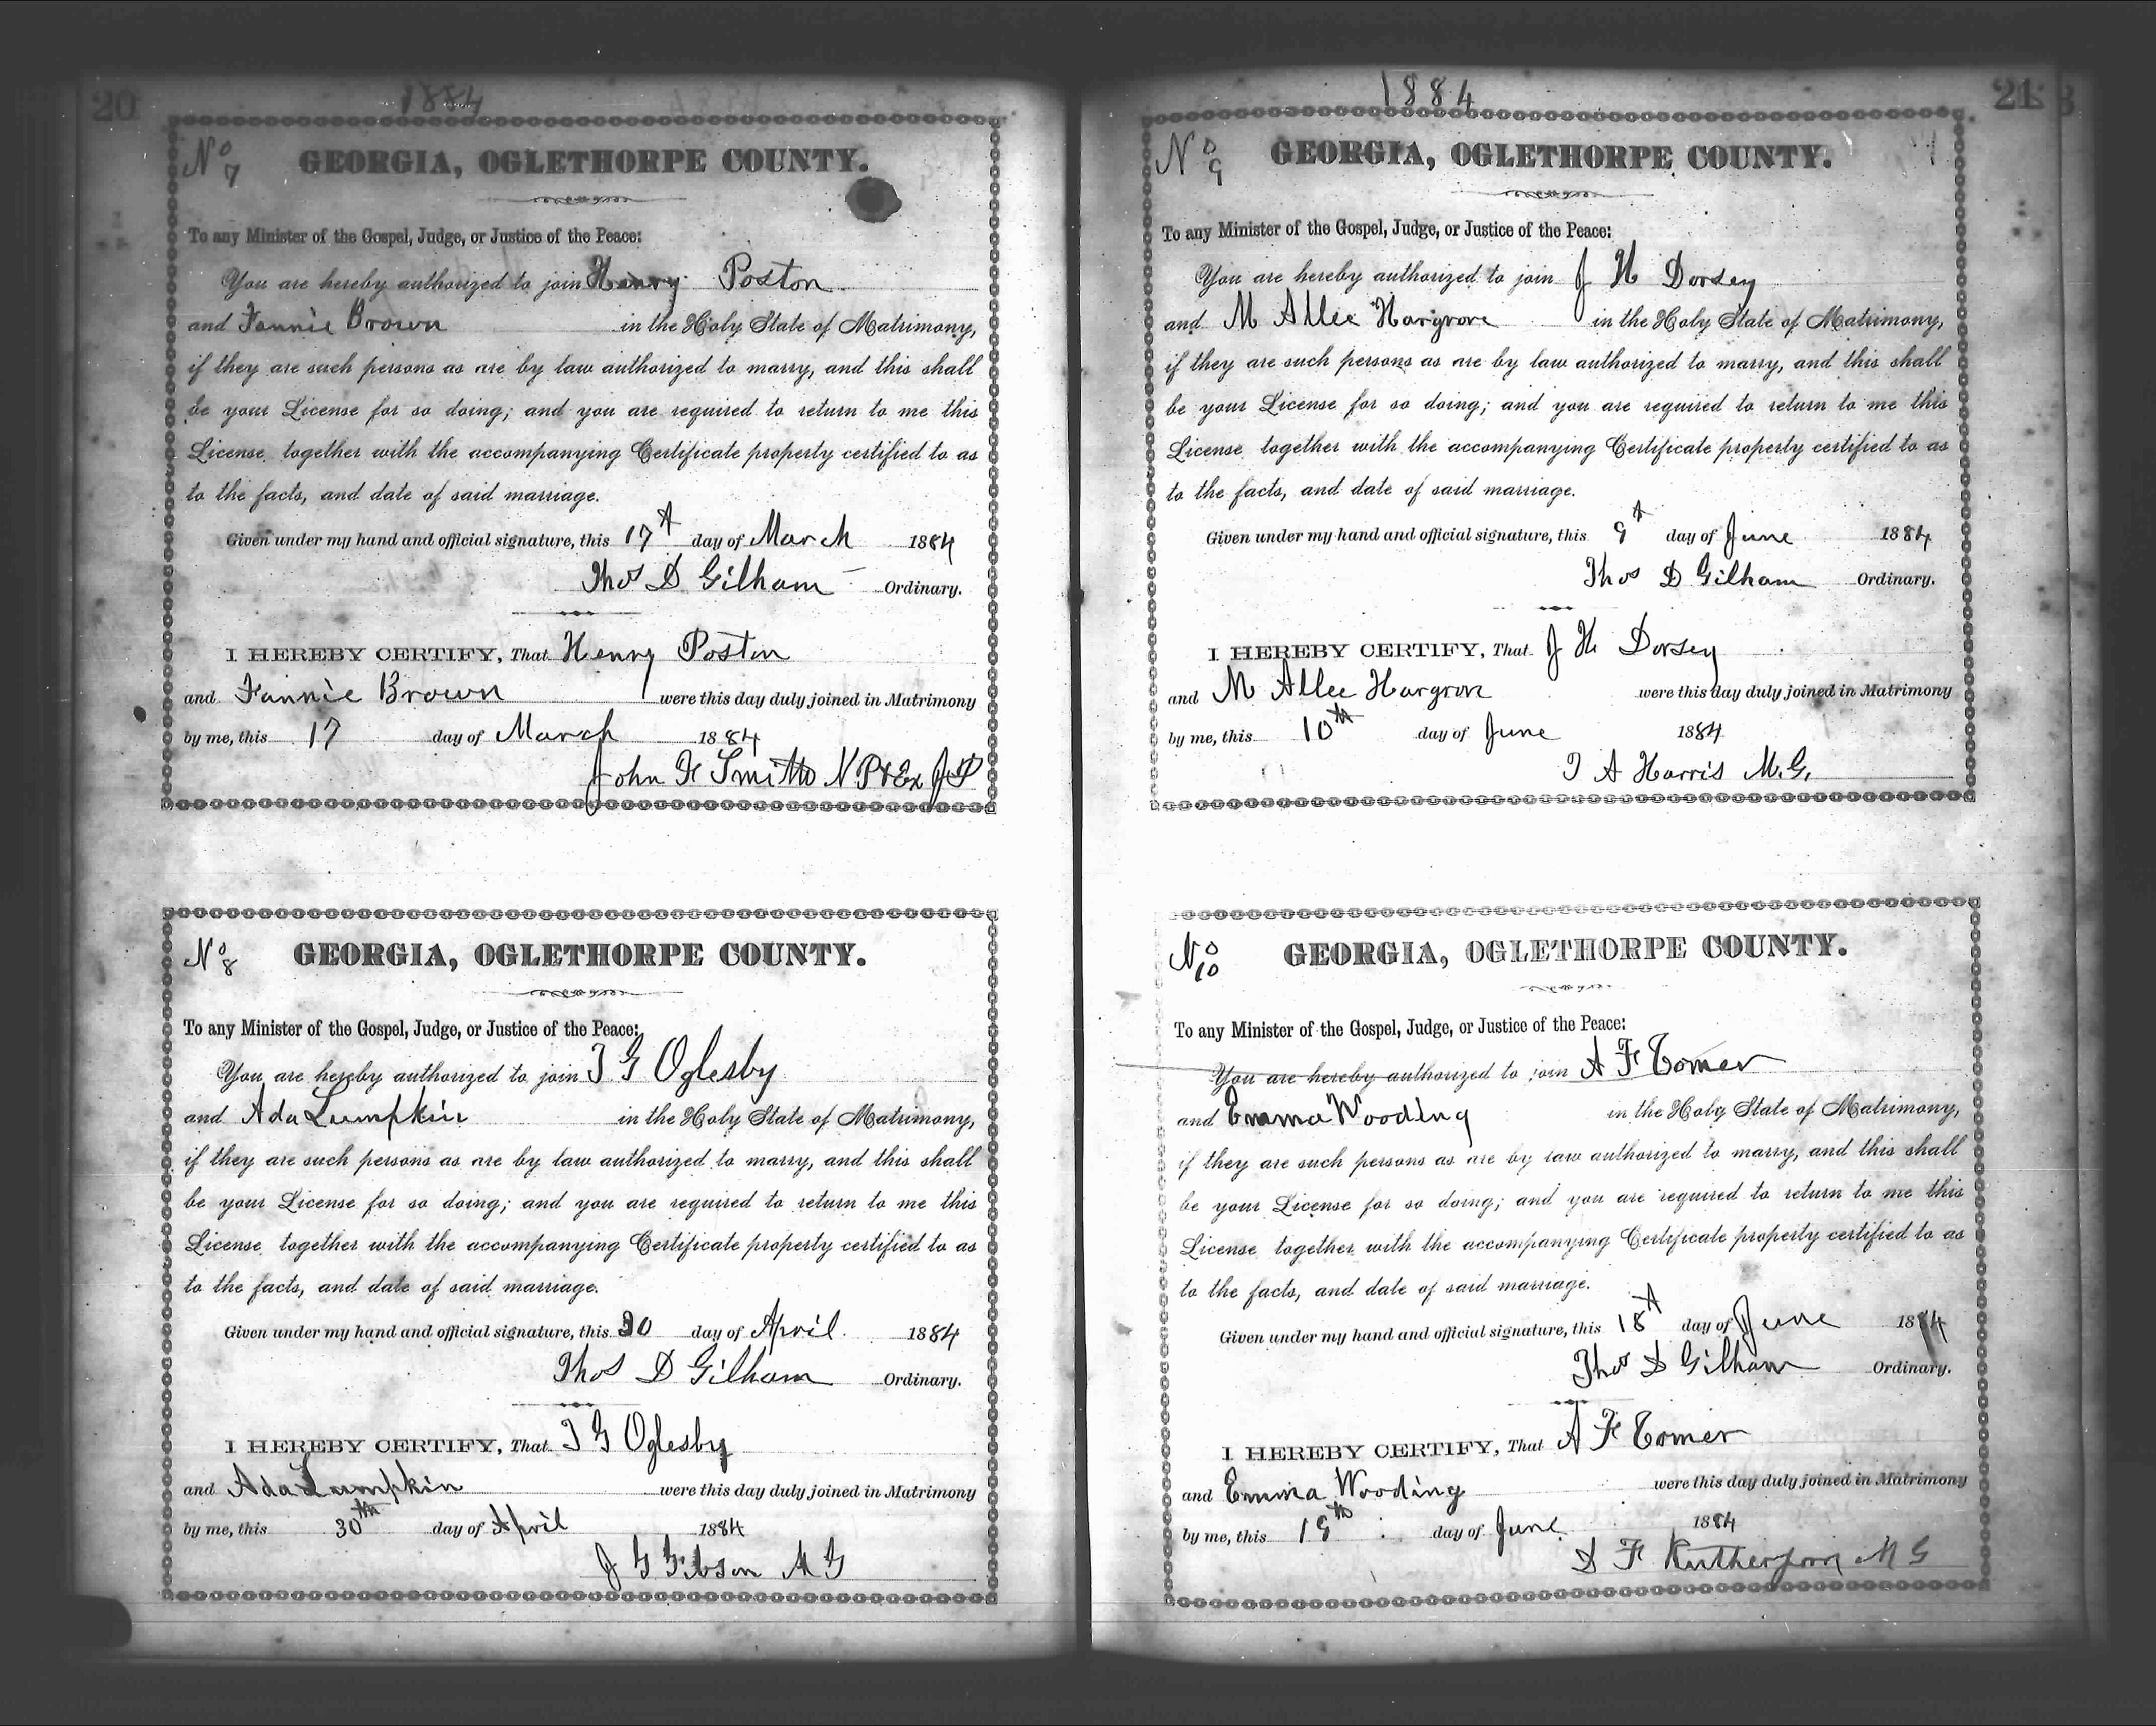 20
1884
No 7
GEORGIA, OGLETHORPE COUNTY.
To any Minister of the Gospel, Judge, or Justice of the Peace:
You are hereby authorized to join Henry Poston
and Fannie Brown in the Holy State of Matrimony,
if they are such persons as are by law authorized to marry, and this shall
be your License for so doing; and you are required to return to me this
License, together with the accompanying Certificate property certified to as
to the facts, and date of said marriage.
Given under my hand and official signature, this 17th day of March 1884
Thos D Gilham Ordinary.
I HEREBY CERTIFY, That Henry Poston
and Fannie Brown were this day duly joined in Matrimony
by me, this 17 day of March 1884
John F Smith N P & Ex J P
No 8
GEORGIA, OGLETHORPE COUNTY.
To any Minister of the Gospel, Judge, or Justice of the Peace:
You are hereby authorized to join T G Oglesby
and Ada Lumpkin in the Holy State of Matrimony,
if they are such persons as are by law authorized to marry, and this shall
be your License for so doing; and you are required to return to me this
License, together with the accompanying Certificate property certified to as
to the facts, and date of said marriage.
Given under my hand and official signature, this 30 day of April 1884
Thos D Gilham Ordinary.
I HEREBY CERTIFY, That T G Oglesby
and Ada Lumpkin were this day duly joined in Matrimony
by me, this 30th day of April 1884
J G Gibson M G
1884
21
No 9
GEORGIA, OGLETHORPE COUNTY.
To any Minister of the Gospel, Judge, or Justice of the Peace:
You are hereby authorized to join J H Dorsey
and M Allee Hargrove in the Holy State of Matrimony,
if they are such persons as are by law authorized to marry, and this shall
be your License for so doing; and you are required to return to me this
License, together with the accompanying Certificate property certified to as
to the facts, and date of said marriage.
Given under my hand and official signature, this 9th day of June 1884
Thos D Gilham Ordinary.
I HEREBY CERTIFY, That J H Dorsey
and M Allee Hargrove were this day duly joined in Matrimony
by me, this 10th day of June 1884
T A Harris M.G.
No 10
GEORGIA, OGLETHORPE COUNTY.
To any Minister of the Gospel, Judge, or Justice of the Peace:
You are hereby authorized to join A F Comer
and Emma Wooding in the Holy State of Matrimony,
if they are such persons as are by law authorized to marry, and this shall
be your License for so doing; and you are required to return to me this
License, together with the accompanying Certificate property certified to as
to the facts, and date of said marriage.
Given under my hand and official signature, this 18th day of June 1884
Thos D Gilham Ordinary.
I HEREBY CERTIFY, That A F Comer
and Emma Wooding were this day duly joined in Matrimony
by me, this 19th day of June 1884
S F Rutherford M G